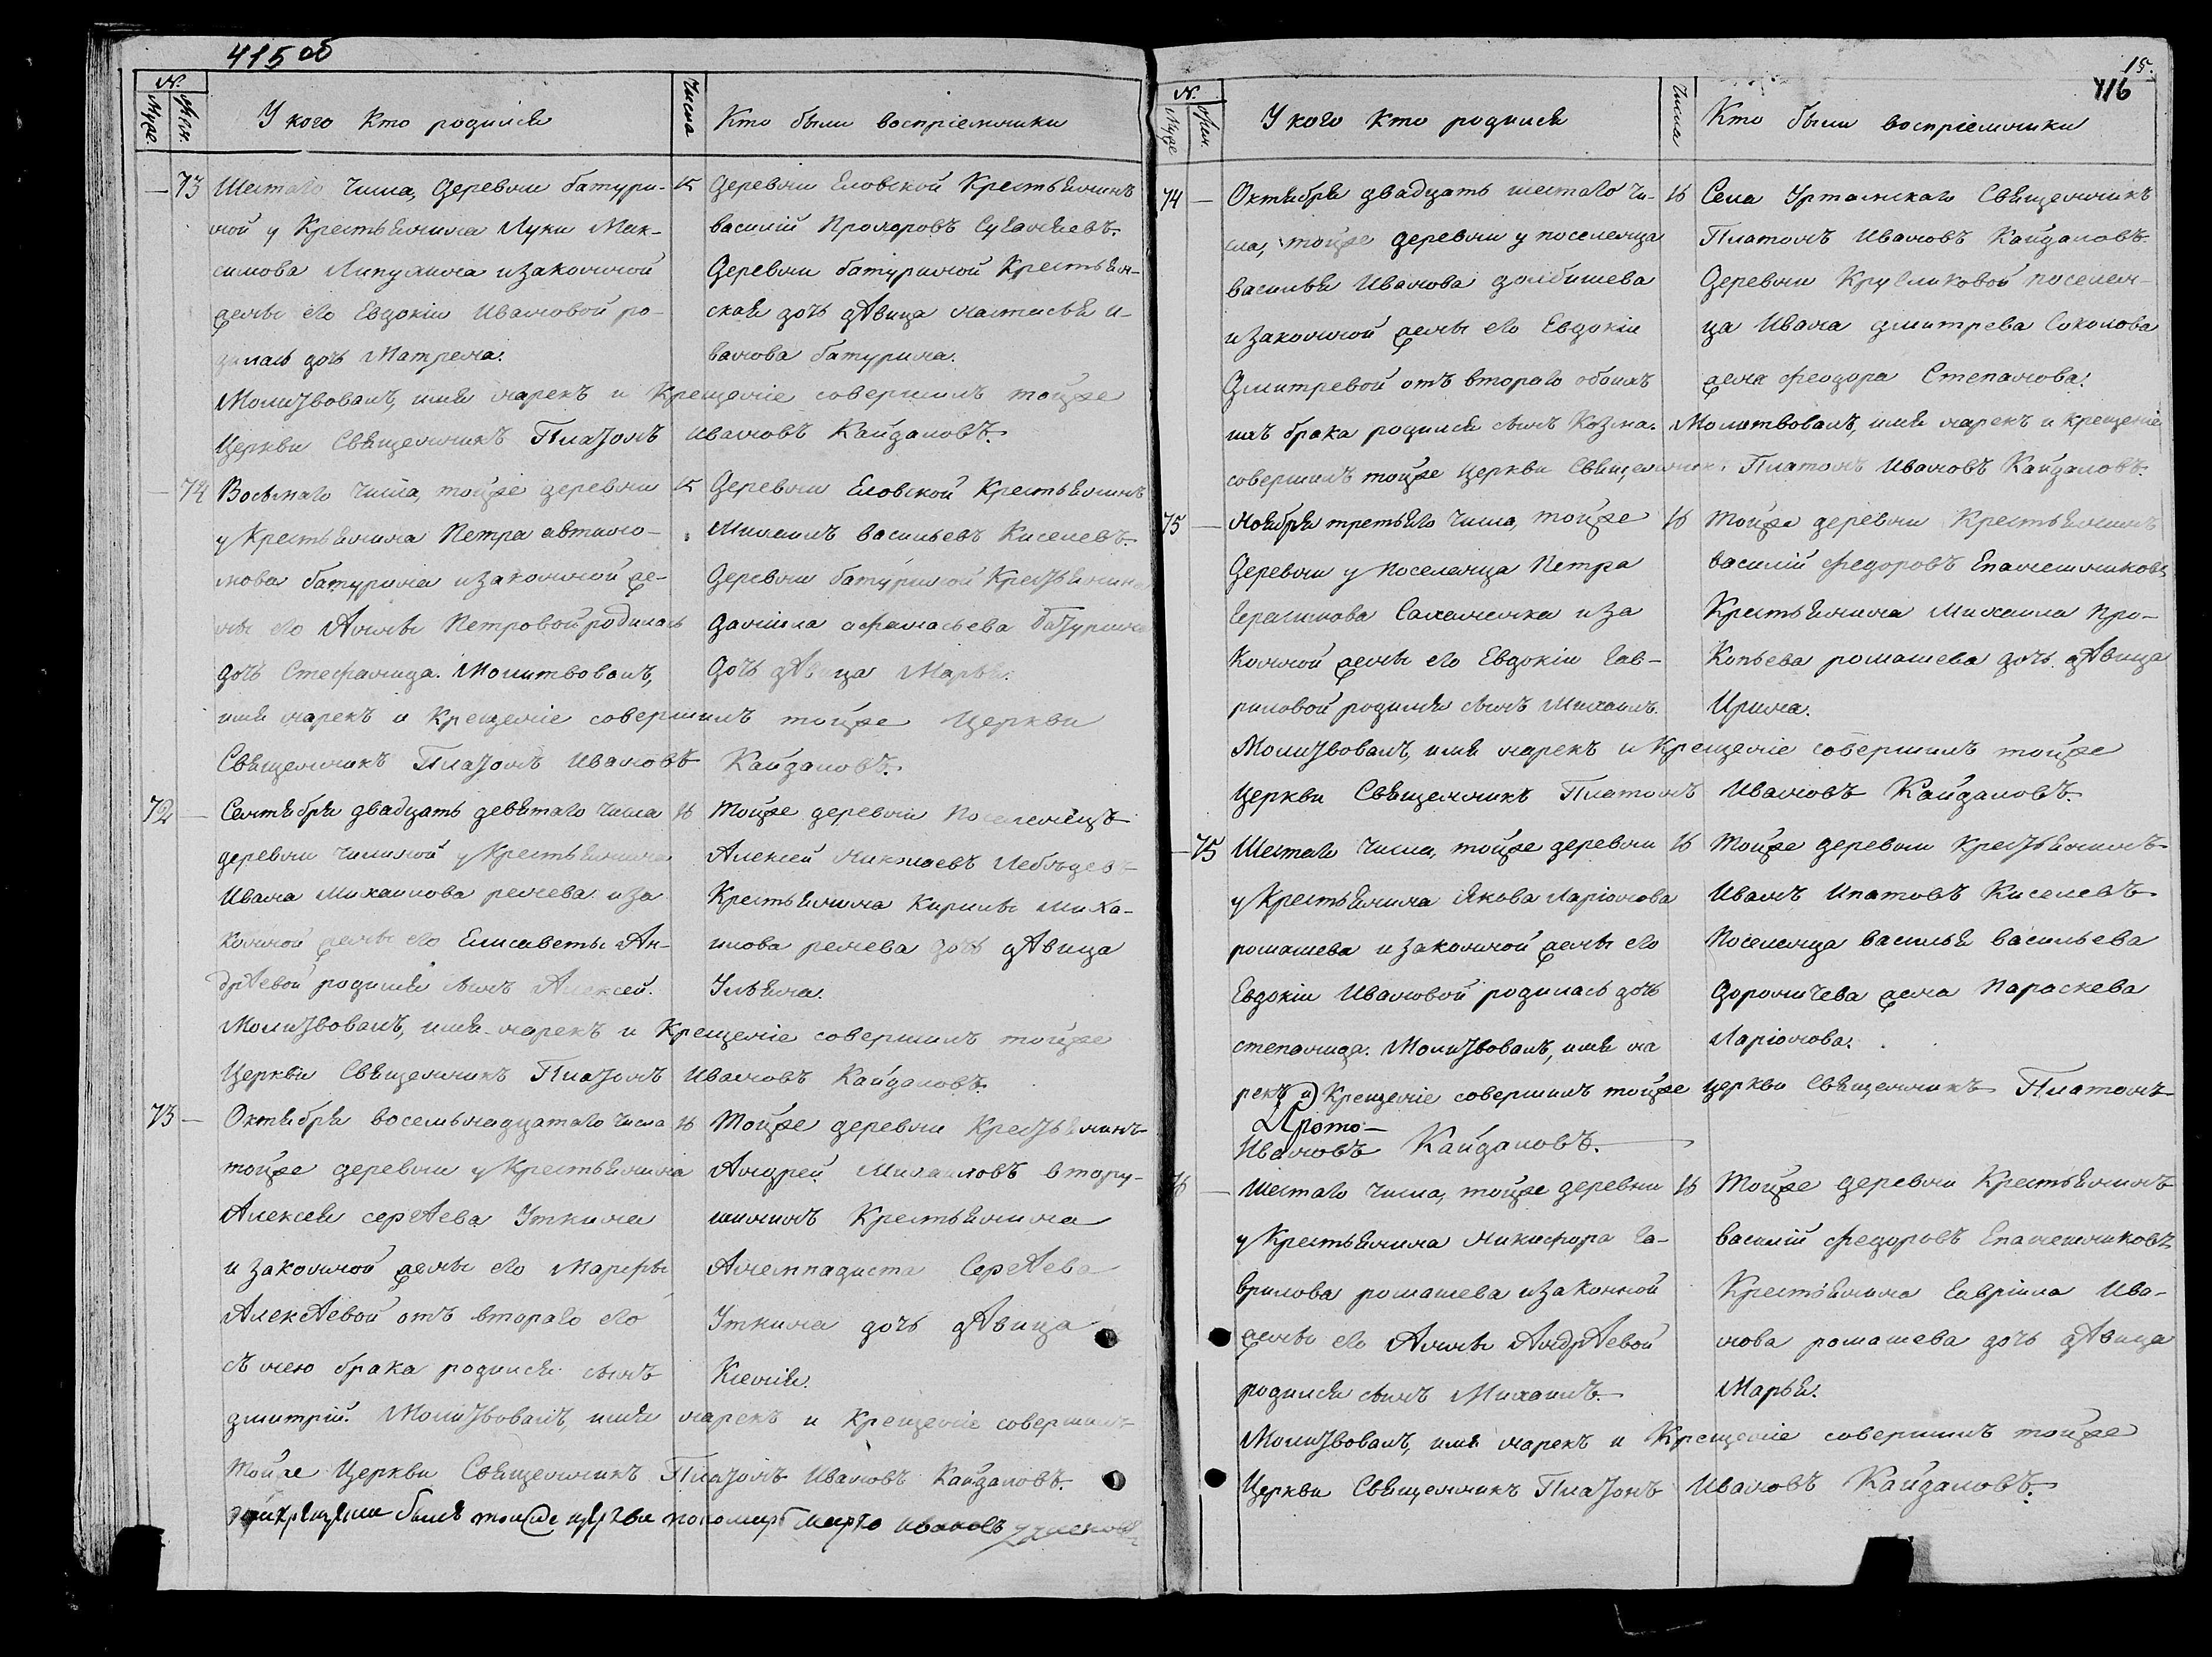 415 об
№.
Муже.
Жен.
У кого кто родился
Числа
Кто были воспріемники
73 Шестаго числа, деревни батури-
ной у Крестьянина Луки Мак-
симова Липухина и законной
жены его Евдокіи Ивановой ро-
дилась дочь Матрена.
15 деревни Еловской Крестьянинъ
василій Прохоровъ
деревни батуриной Крестьян-
ская дочь дѣвица настасья и-
ванова батурина.
Молитвовалъ, имя нарекъ и Крещеніе совершилъ тойже
Церкви Священникъ Платонъ Ивановъ Кайдаловъ.
74 Восьмаго числа, тойже деревни
у Крестьянина Петра автино-
мова батурина и законной же-
ны его Анны Петровой родилась
дочь Стефанида. Молитвовалъ,
15 Деревни Еловской Крестьянинъ
Михаилъ васильевъ Киселевъ.
Деревни батуриной Крестьянина
даніила афанасьева батурина
дочь дѣвица Марья.
имя нарекъ и Крещеніе совершилъ тойже Церкви
Священникъ Платонъ Ивановъ Кайдаловъ.
72 Сентября двадцать девятаго числа
деревни чилиной у Крестьянина
Ивана Михаилова ренева и за
конной жены его Елисаветы Ан-
дрѣевой родился сынъ Алексей.
16 Тойже деревни Поселенецъ
Алексей николаевъ Лебѣдевъ
Крестьянина Кирилы Миха-
илова ренева дочь дѣвица
Ульяна.
Молитвовалъ, имя нарекъ и Крещеніе совершилъ тойже
Церкви Священникъ Платонъ Ивановъ Кайдаловъ.
73 Октября восемьнадцатаго числа
тойже деревни у Крестьянина
Алексея сергѣева Уткина
и законной жены его Марфы
Алексѣевой отъ втораго его
съ нею брака родился сынъ
16 Тойже деревни Крестьянинъ
Андрей Михаиловъ втору-
шининъ Крестьянина
Анемпадиста Сергѣева
Уткина дочь дѣвица
Ксенія.
дмитрій. Молитвовалъ, имя нарекъ и Крещеніе совершилъ
Тойже Церкви Священникъ Платонъ Ивановъ Кайдаловъ.
были тойже церкви пономарь ивановъ
15.
416
№.
Муже
Жен.
У кого кто родился
Числа
Кто были воспріемники
74 Октября двадцать шестаго чи-
сла, тойже деревни у поселенца
василья Иванова долбишева
и законной жены его Евдокіи
Дмитревой отъ втораго обоихъ
16 Села Уртамскаго Священникъ
Платонъ Ивановъ Кайдаловъ.
Деревни Кругликовой поселен-
ца Ивана дмитрева Соколова
жена феодора Степанова.
ихъ брака родился сынъ Козма. Молитвовалъ, имя нарекъ и крещеніе
совершилъ тойже церкви Священникъ Платонъ Ивановъ Кайдаловъ.
75 ноября третьяго числа, тойже
Деревни у Поселенца Петра
Герасимова и за
Конной жены его Евдокіи Гав-
риловой родился сынъ Михаилъ.
16 Тойже деревни Крестьянинъ
василій федоровъ Епанешниковъ
Крестьянина Михаила Про-
Копьева ромашева дочь дѣвица
Ирина.
Молитвовалъ, имя нарекъ и Крещеніе совершилъ тойже
Церкви Священникъ Платонъ Ивановъ Кайдаловъ.
75 Шестаго числа, тойже деревни
у Крестьянина Якова Ларіонова
ромашева и законной жены его
Евдокіи Ивановой родилась дочь
степанида. Молитвовалъ, имя на
16 Тойже деревни Крестьянинъ
Иванъ Ипатовъ Киселевъ
Поселенца василья васильева
Дороничева жена Параскева
Ларіонова.
рекъ и Крещеніе совершилъ тойже церкви Священникъ Платонъ
Ивановъ Кайдаловъ.
76 Шестаго числа, тойже деревни
у Крестьянина Никифора Га-
врилова ромашева и законной
жены его Анны Андрѣевой
родился сынъ Михаилъ.
16 Тойже деревни Крестьянинъ
василій федоровъ Епанешниковъ
Крестьянина Гавріила Ива-
нова ромашева дочь дѣвица
Марья.
Молитвовалъ, имя нарекъ и Крещеніе совершилъ тойже
Церкви Священникъ Платонъ Ивановъ Кайдаловъ.